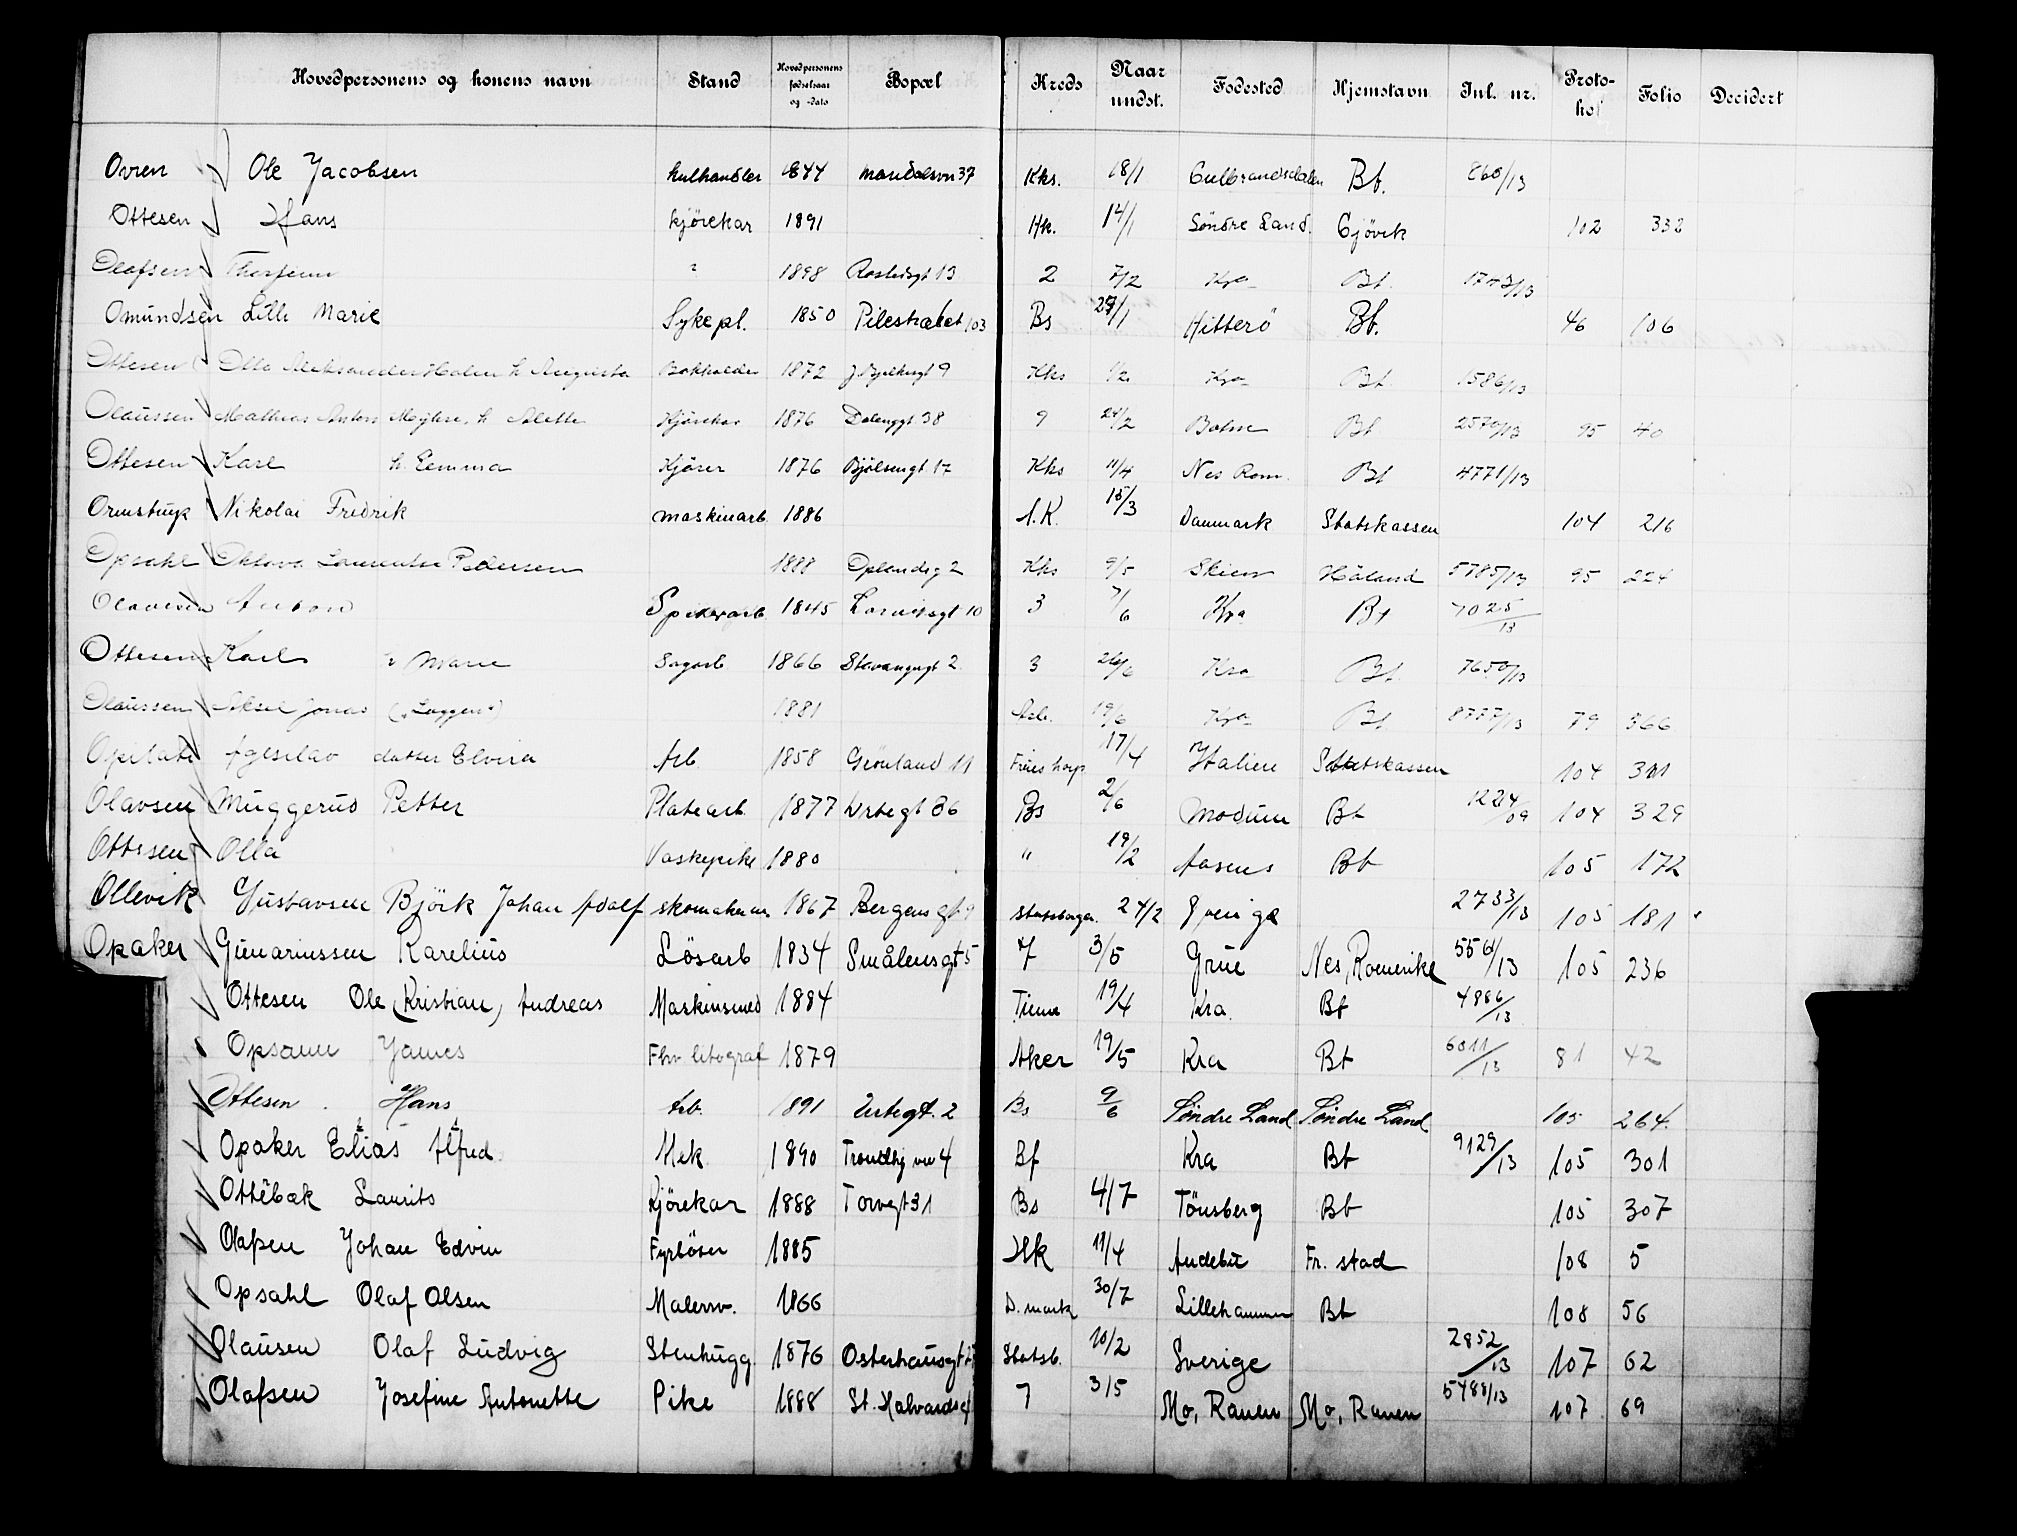 Hovedpersonens og konens navn Stand Hovedpersonens fødselsaar og -dato Bopæl Kreds Naar undst. Fødested Hjemstavn Inl. nr. Protokol Folio Decidert
Ovren Ole Jacobsen kulhandler 1844 37 Kks. 18/1 Gulbrandsdalen Bf. 860/13
Ottesen Hans kjörekar 1891 Hk. 14/1 Söndre Land. Gjövik 102 332
Olafsen 1898 13 2 7/2 Kra Bf. 1773/13
Omundsen Lilli Marie Sykepl. 1850 Pilestrædet 103 Bs /1 Hitterö Bf. 46 106
Ottesen Otto Aleksander h. Augusta Bokholder 1872 J. Bjelkesgt 9 Kks 1/2 Kra Bf 1586/13
Olaussen Mathias Anton h Alette Kjörekar 1876 Dalenggt 38 9 24/2 Bf 2570/13 95 40
Ottesen Karl h. Emma Kjörer 1876 Bjölsengt 17 Kks 11/4 Nes Rom. Bf 4771/13
Ormstrup Nikolai Fredrik maskinarb. 1886 A.K. 15/3 Danmark Statskassen 104 216
Opsahl Oktova Pedersen 1888 Oplandsg 2 Kks 9/5 Skien Håland 5785/13 95 224
Olavesen Anton 1845 10 3 7/6 Kra Bf 7025/13
Ottesen Karl h Marie Sagarb 1866 Stavanggt 2. 3 26/6 Kra Bf. 7650/13
Olaussen Aksel Jonas 1881 19/6 Kra Bf 8777/13 79 366
datter Elvira Arb. 1858 Grönland 11 17/4 Italien Statskassen 104
Olavsen Muggerud Petter Platearb. 1877 Urtegt 36 Bs 2/6 Modum Bf 1224/09 104 329
Ottesen Olla Vaskepike 1880 " 19/2 Aasnes Bf 105 172
Ollevik Gustavsen Björk Johan Adolf skomakersv 1867 Bergensgt 9 statsborger. 24/2 Sverige 2733/13 105 181
Opaker Gunariussen Karelius Lösarb 1834 Smålensgt 5 7 3/5 Grue Nes, Romerike 5561/13 105 236
Ottesen Ole (Kristian) Andreas Maskinsmed 1884 19/4 Kra. Bf 4886/13
Opsann James Fhv. litograf 1879 Aker 19/5 Kra Bf 6011/13 81 42
Ottesen. Hans Arb. 1891 Urtegt. 2 Bs 9/6 Söndre Land Söndre Land 105 264.
Opaker Elias Alfred. Mek. 1890 Trondhj vei 4 Bf Kra Bf 9129/13 105 301
Ottebak Laurits Kjörekar 1888 Torvegt 31 Bs 4/7 Tönsberg Bf 105 307
Olafsen Johan Edvin Fyrböter 1885 Hk 11/4 Andebu Fr. stad 108 5
Opsahl Olaf Olsen Malersv. 1866 D. mark 30/7 Lillehammer Bf 108 56
Olausen Olaf Ludvig Stenhugg. 1876 Osterhausgt 27 Statsb. 10/2 Sverige 2852/13 107 62
Olafsen Josefine Antonette Pike 1888 St. Halvardsg 7 3/5 Mo, Ranen Mo, Ranen 5488/13 107 69